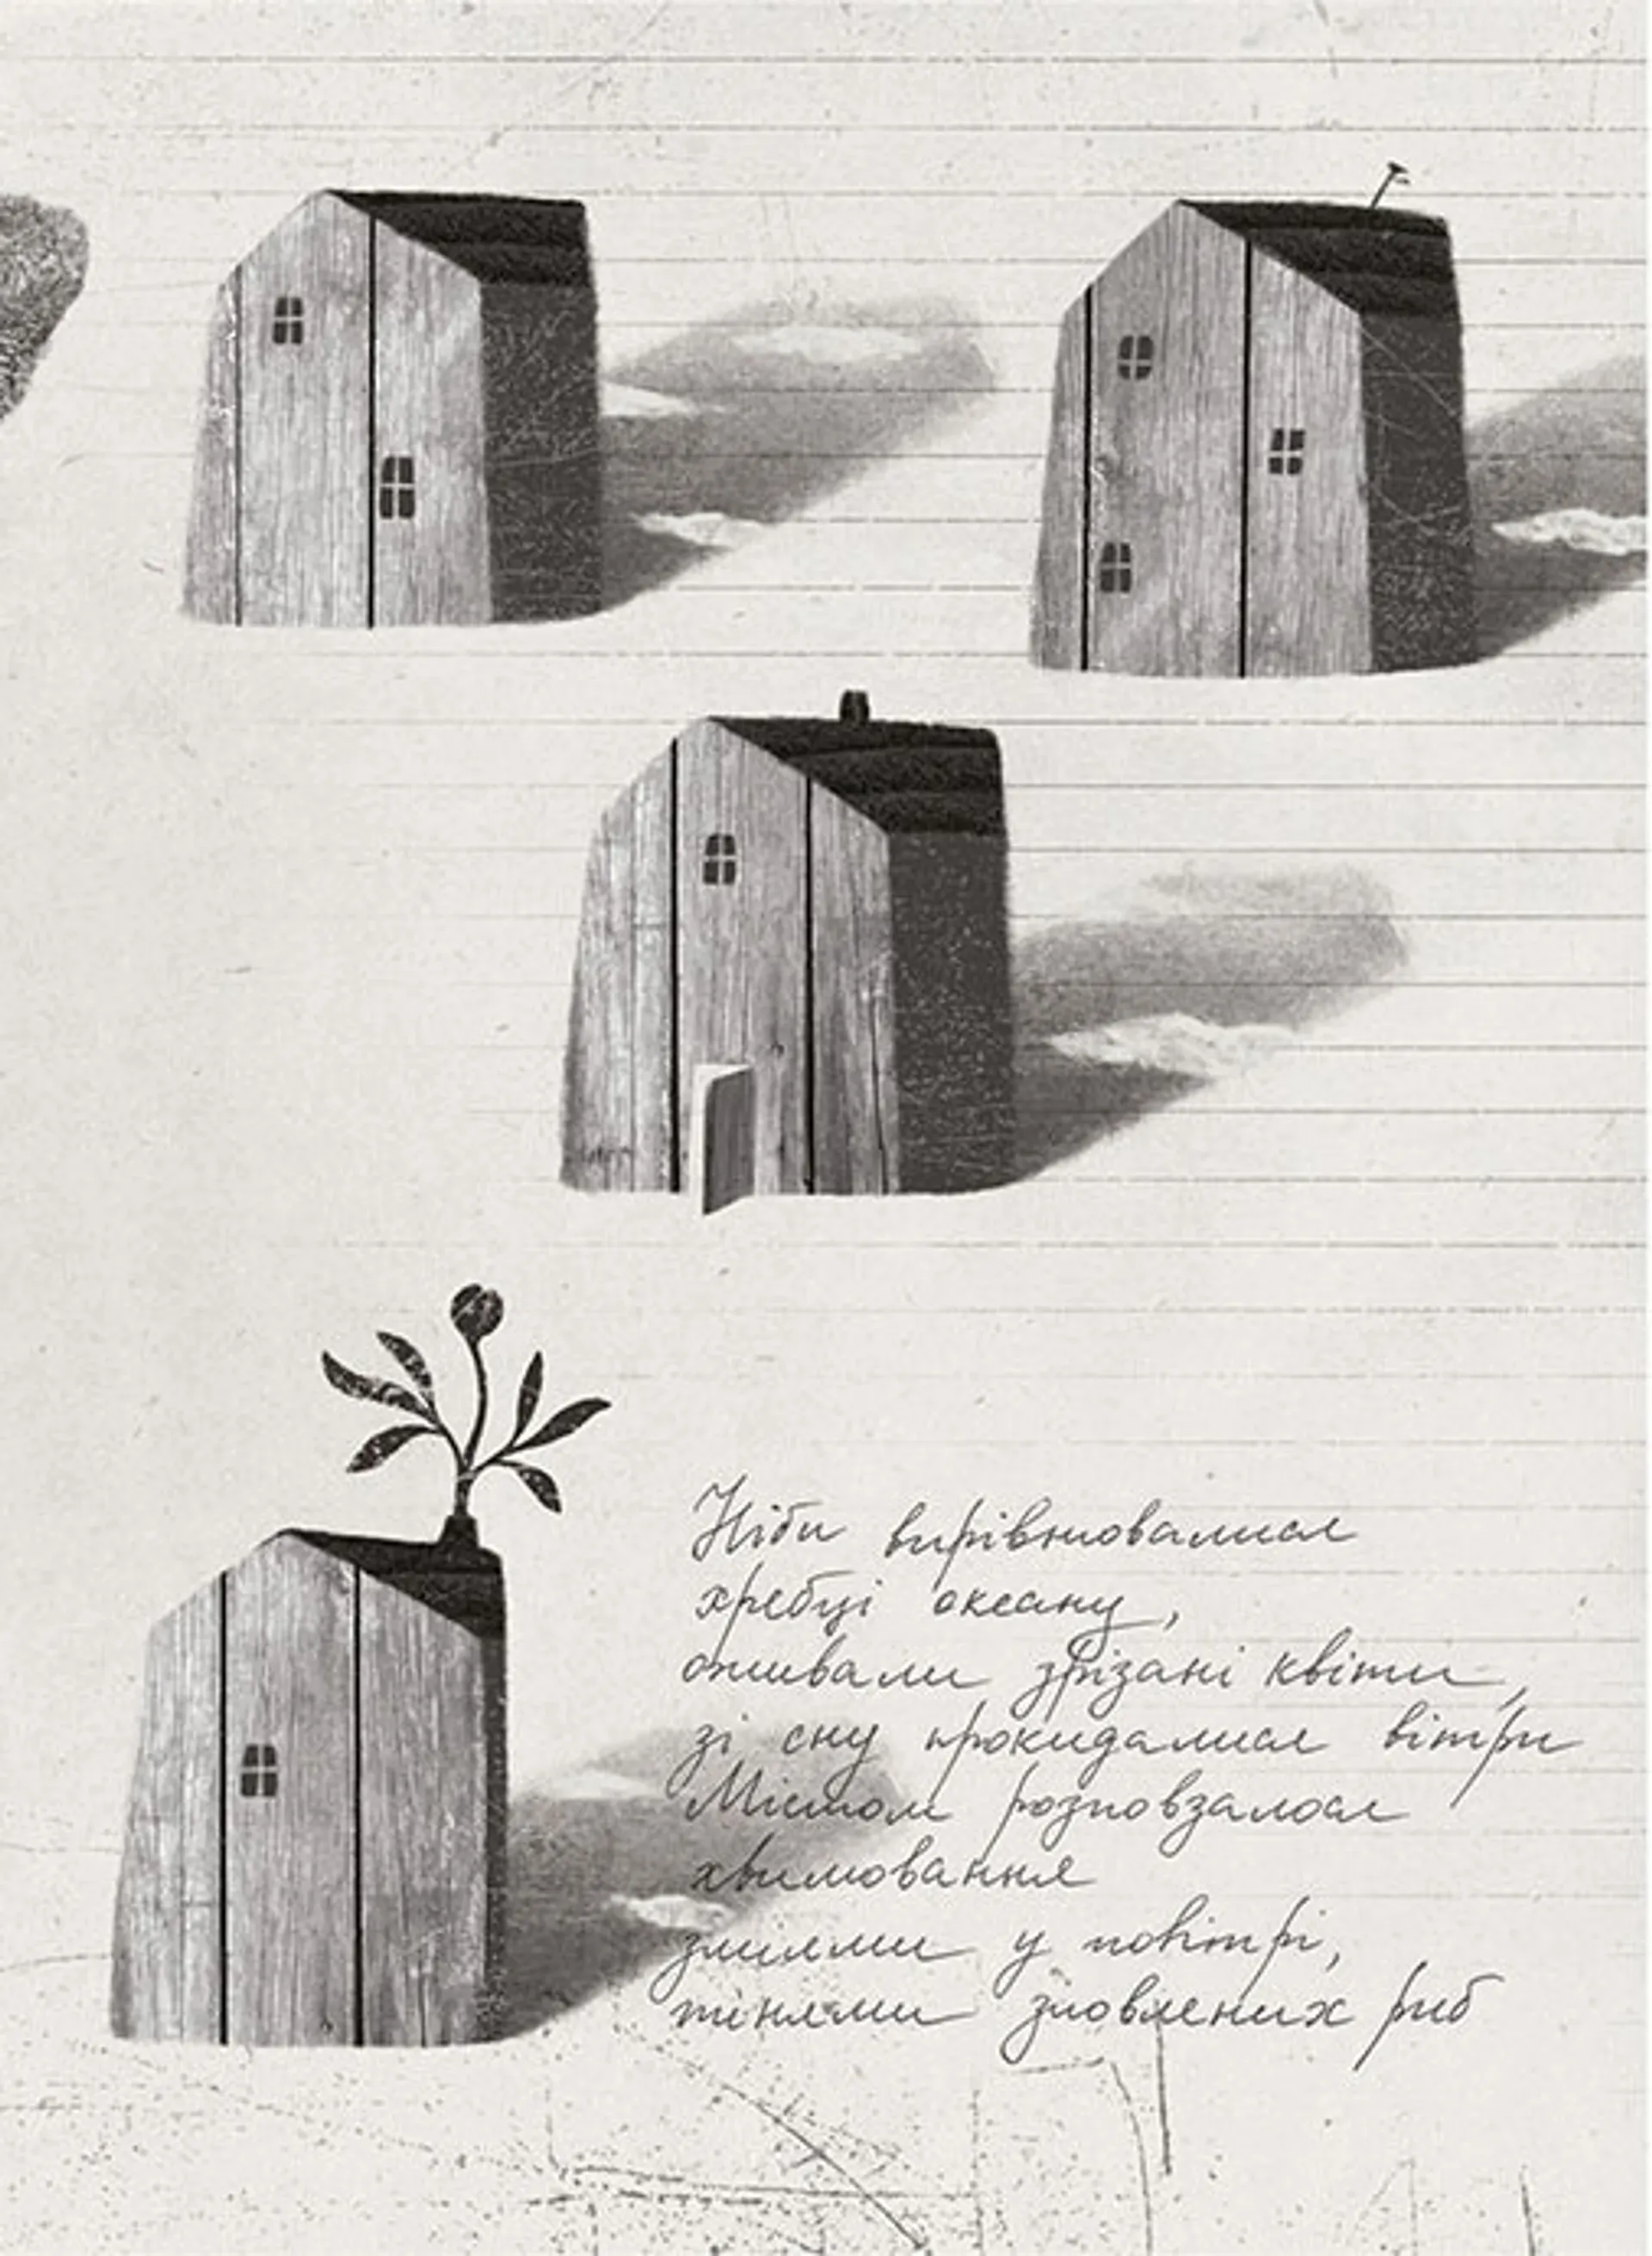 Ніби вирівнювалися
хребці океану,
оживали зрізані квіти,
зі сну прокидалися вітри
Містом розповзалося
хвилювання
зміями у повітрі,
тінями зловлених риб